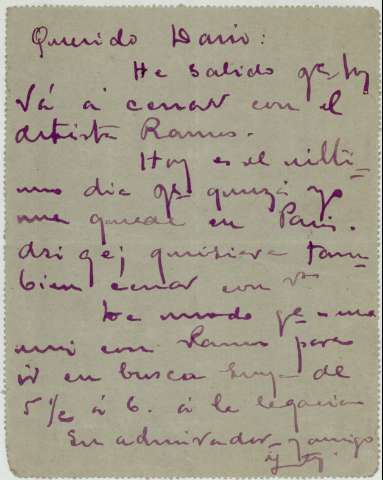 Querido Dario:
He salido qe hoy
vá á cenar con el
artista Ramos.
Hoy es el ulti-
mo dia qe quizá yo
me quede en Paris.
quisiera tam-
bien cenar con Vd
De modo qe ma
con Ramos para
ir en busca suya de
5 1/2 á 6. á la legacion
Su admirador y amigo